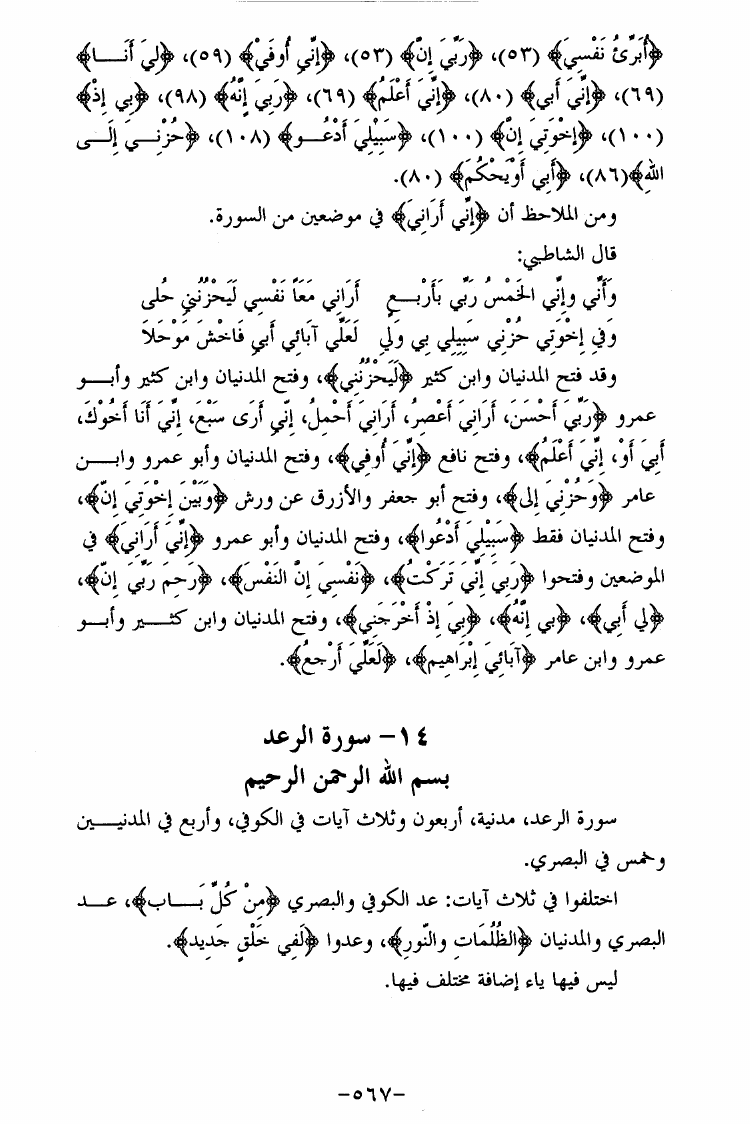 ﴿أُبَرِّئُ نَفْسِيَ﴾ (٥٣)، ﴿رَبِّيَ إِنَّ﴾ (٥٣)، ﴿إِنِّي أُوفِيْ﴾ (٥٩)، ﴿لِيَ أَنَـــا﴾
(٦٩)، ﴿إِنِّيَ أَبِي﴾ (٨٠)، ﴿إِنِّيَ أَعْلَمُ﴾ (٦٩)، ﴿رَبِيَ إِنَّهُ﴾ (٩٨)، ﴿بِي إِذْ﴾
(١٠٠)، ﴿إِخْوَتِيَ إِنَّ﴾ (١٠٠)، ﴿سَبِيْلِيَ أَدْعُـــو﴾ (١٠٨)، ﴿حُزْنِـــيَ إِلَـــى
اللهِ﴾(٨٦)، ﴿أَبِي أَوْيَحْكُمَ﴾ (٨٠).
ومن الملاحظ أن ﴿إِنِّي أَرَانِيَ﴾ في موضعين من السورة.
قال الشاطبي:
وَأَنِّي وإِنِّي الخَمْسُ رَبِّي بَأَرْبـــعٍ أَرَانِي مَعَاً نَفْسِي لَيَحْزُنُنِي حلى
وَفِي إِخْوَتِي حُزْنِي سَبِيلِي بِي وَلِي لَعَلِّي آبَائِي أَبِي فَاخْشَ مَوْحَلاَ
وقد فتح المدنيان وابن كثير ﴿لَيَحْزُنُنِي﴾، وفتح المدنيان وابن كثير وأبـــو
عمرو ﴿رَبِّيَ أَحْسَنَ، أَرَانِيَ أَعْصَرُ، أَرَانِيَ أَحْمِلُ، إِنِّي أَرَى سَبْعَ، إِنِّيَ أَنَا أَخُوْكَ،
أَبِيَ أَوْ، إِنِّيَ أَعْلَمُ﴾، وفتح نافع ﴿إِنِّيَ أُوفِي﴾، وفتح المدنيان وأبو عمرو وابـــن
عامر ﴿وَحُزْنِيَ إِلَى﴾، وفتح أبو جعفر والأزرق عن ورش ﴿وَبَيْنَ إِخْوَتِيَ إِنَّ﴾،
وفتح المدنيان فقط ﴿سَبِيْلِيَ أَدْعُوا﴾، وفتح المدنيان وأبو عمرو ﴿إِنِّيَ أَرَانِيَ﴾ في
الموضعين وفتحوا ﴿رَبِيَ إِنِّيَ تَرَكْتُ﴾، ﴿نَفْسِيَ إِنَّ النَفْسَ﴾، ﴿رَحِمَ رَبِّيَ إِنَّ﴾،
﴿لِي أَبِي﴾، ﴿بِي إِنَّهُ﴾، ﴿بِيَ إِذْ أَخْرَجَنِي﴾، وفتح المدنيان وابن كثـــير وأبـــو
عمرو وابن عامر ﴿آبَائِيَ إِبْرَاهِيم﴾، ﴿لَعَلِّيَ أَرْجعُ﴾.
١٤- سورة الرعد
بسم الله الرحمن الرحيم
سورة الرعد، مدنية، أربعون وثلاث آيات في الكوفي، وأربع في المدنيـــين
وخمس في البصري.
اختلفوا في ثلاث آيات: عد الكوفي والبصري ﴿مِنْ كُلِّ بَـــاب﴾، عـــد
البصري والمدنيان ﴿الظُلُمَاتِ والنُّور﴾، وعدوا ﴿لَفِي خَلْقٍ جَدِيد﴾.
ليس فيها ياء إضافة مختلف فيها.
-٥٦٧-